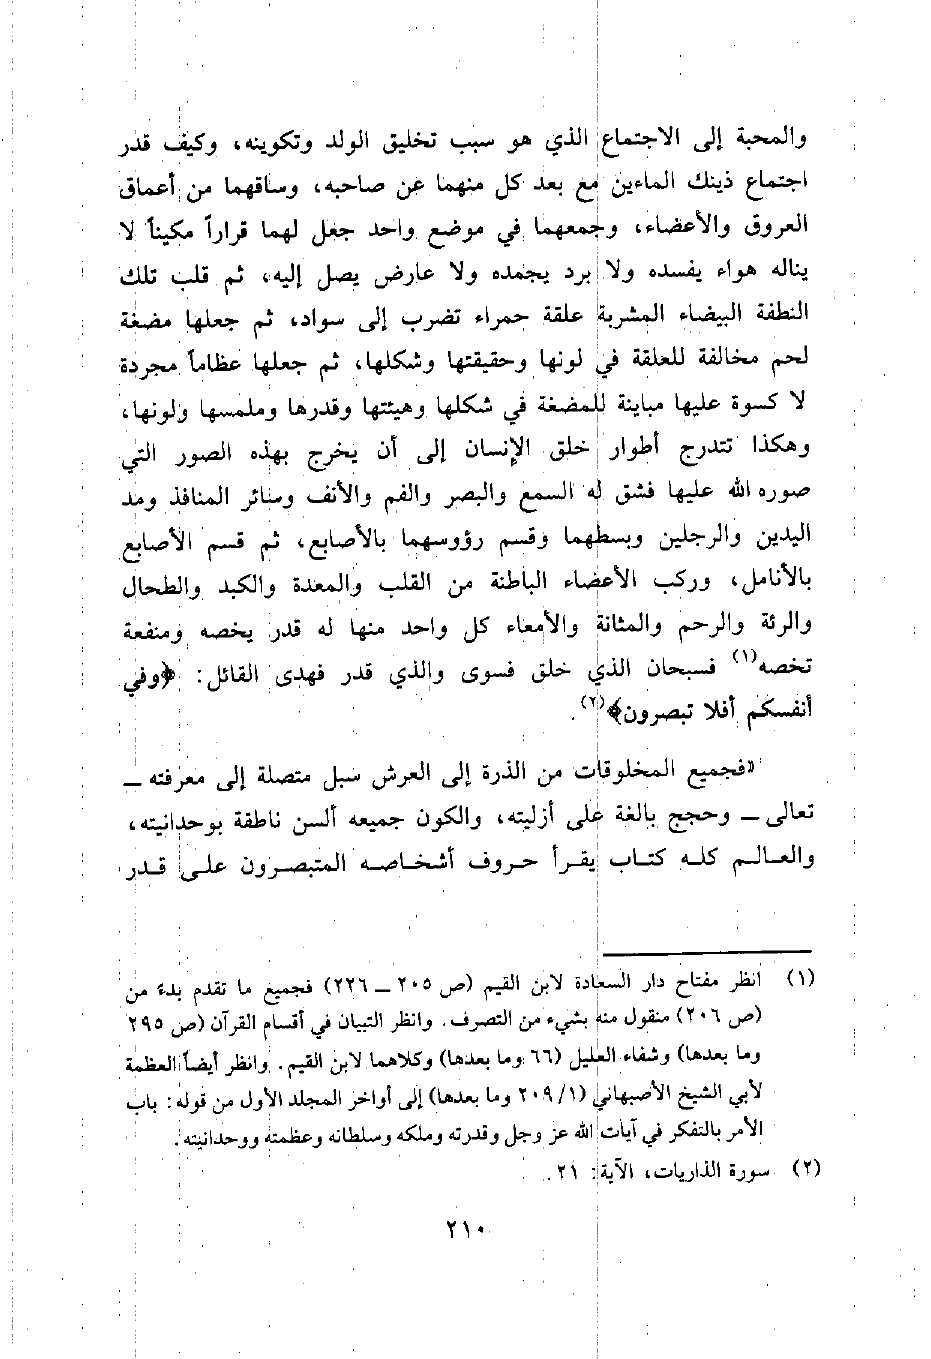 والمحبة إلى الاجتماع الذي هو سبب تخليق الولد وتكوينه، وكيف قدر
اجتماع ذينك الماءين مع بعد كل منهما عن صاحبه، وساقهما من أعماق
العروق والأعضاء، وجمعهما في موضع واحد جعل لهما قراراً مكيناً لا
يناله هواء يفسده ولا برد يجمده ولا عارض يصل إليه، ثم قلب تلك
النطفة البيضاء المشربة علقة حمراء تضرب إلى سواد، ثم جعلها مضغة
لحم مخالفة للعلقة في لونها وحقيقتها وشكلها، ثم جعلها عظاماً مجردة
لا كسوة عليها مباينة للمضغة في شكلها وهيئتها وقدرها وملمسها ولونها،
وهكذا تتدرج أطوار خلق الإنسان إلى أن يخرج بهذه الصور التي
صوره الله عليها فشق له السمع والبصر والفم والأنف وسائر المنافذ ومد
اليدين والرجلين وبسطهما وقسم رؤوسهما بالأصابع، ثم قسم الأصابع
بالأنامل، وركب الأعضاء الباطنة من القلب والمعدة والكبد والطحال
والرئة والرحم والمثانة والأمعاء كل واحد منها له قدر يخصه ومنفعة
تخصه(١) فسبحان الذي خلق فسوى والذي قدر فهدى القائل: ﴿وفي
أنفسكم أفلا تبصرون﴾(٢).
«فجميع المخلوقات من الذرة إلى العرش سبل متصلة إلى معرفته ـ
تعالى ـ وحجج بالغة على أزليته، والكون جميعه ألسن ناطقة بوحدانيته،
والعالم كله كتاب يقرأ حروف أشخاصه المتبصرون على قدر
(١) أنظر مفتاح دار السعادة لابن القيم (ص ٢٠٥ ـ ٢٢٦) فجميع ما تقدم بدء من
(ص ٢٠٦) منقول منه بشيء من التصرف. وانظر التبيان في أقسام القرآن (ص ٢٩٥
وما بعدها) وشفاء العليل (٦٦ وما بعدها) وكلاهما لابن القيم. وانظر أيضاً العظمة
لأبي الشيخ الأصبهاني (٢٠٩/١ وما بعدها) إلى أواخر المجلد الأول من قوله: باب
الأمر بالتفكر في آيات الله عز وجل وقدرته وملكه وسلطانه وعظمته ووحدانيته.
(٢) سورة الذاريات، الآية: ٢١.
٢١٠